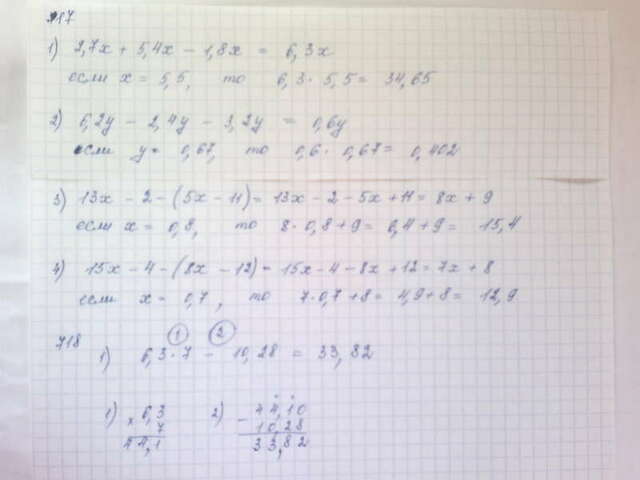 717
1) 2,7x + 5,4x - 1,8x = 6,3x
если x = 5,5, то 6,3 · 5,5 = 34,65
2) 6,2y - 2,4y - 3,2y = 0,6y
если y = 0,67, то 0,6 · 0,67 = 0,402
3) 13x - 2 - (5x - 11) = 13x - 2 - 5x + 11 = 8x + 9
если x = 0,8, то 8 · 0,8 + 9 = 6,4 + 9 = 15,4
4) 15x - 4 - (8x - 12) = 15x - 4 - 8x + 12 = 7x + 8
если x = 0,7, то 7 · 0,7 + 8 = 4,9 + 8 = 12,9
718
1 2
1) 6,3 · 7 - 10,28 = 33,82
1) 6,3 2) 44,10
x 7 - 10,28
44,1 33,82